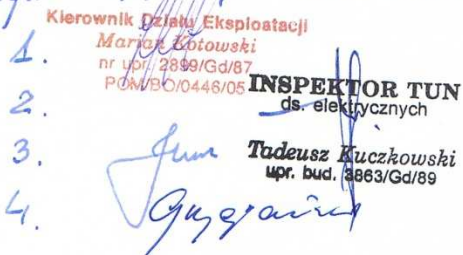 Kierownik Działu Eksploatacji
1. Marian Kotowski
nr upr. 2899/Gd/87
POM/BO/0446/05
INSPEKTOR TUN
2. ds. elektrycznych
3. Tadeusz Kuczkowski
upr. bud. 3863/Gd/89
4.